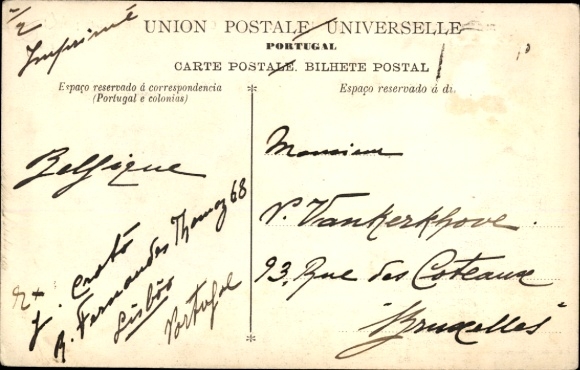 Imprimé
UNION POSTALE UNIVERSELLE
PORTUGAL
CARTE POSTALE. BILHETE POSTAL
Espaço reservado á correspondencia
(Portugal e colonias)
Espaço reservado á di
Belgique
J. Crató
R. Fernandes Thomaz 68
Lisbôo
Portugal
Monsieur
V. Vankerkhove
93. Rue des Coteaux
"Bruxelles"